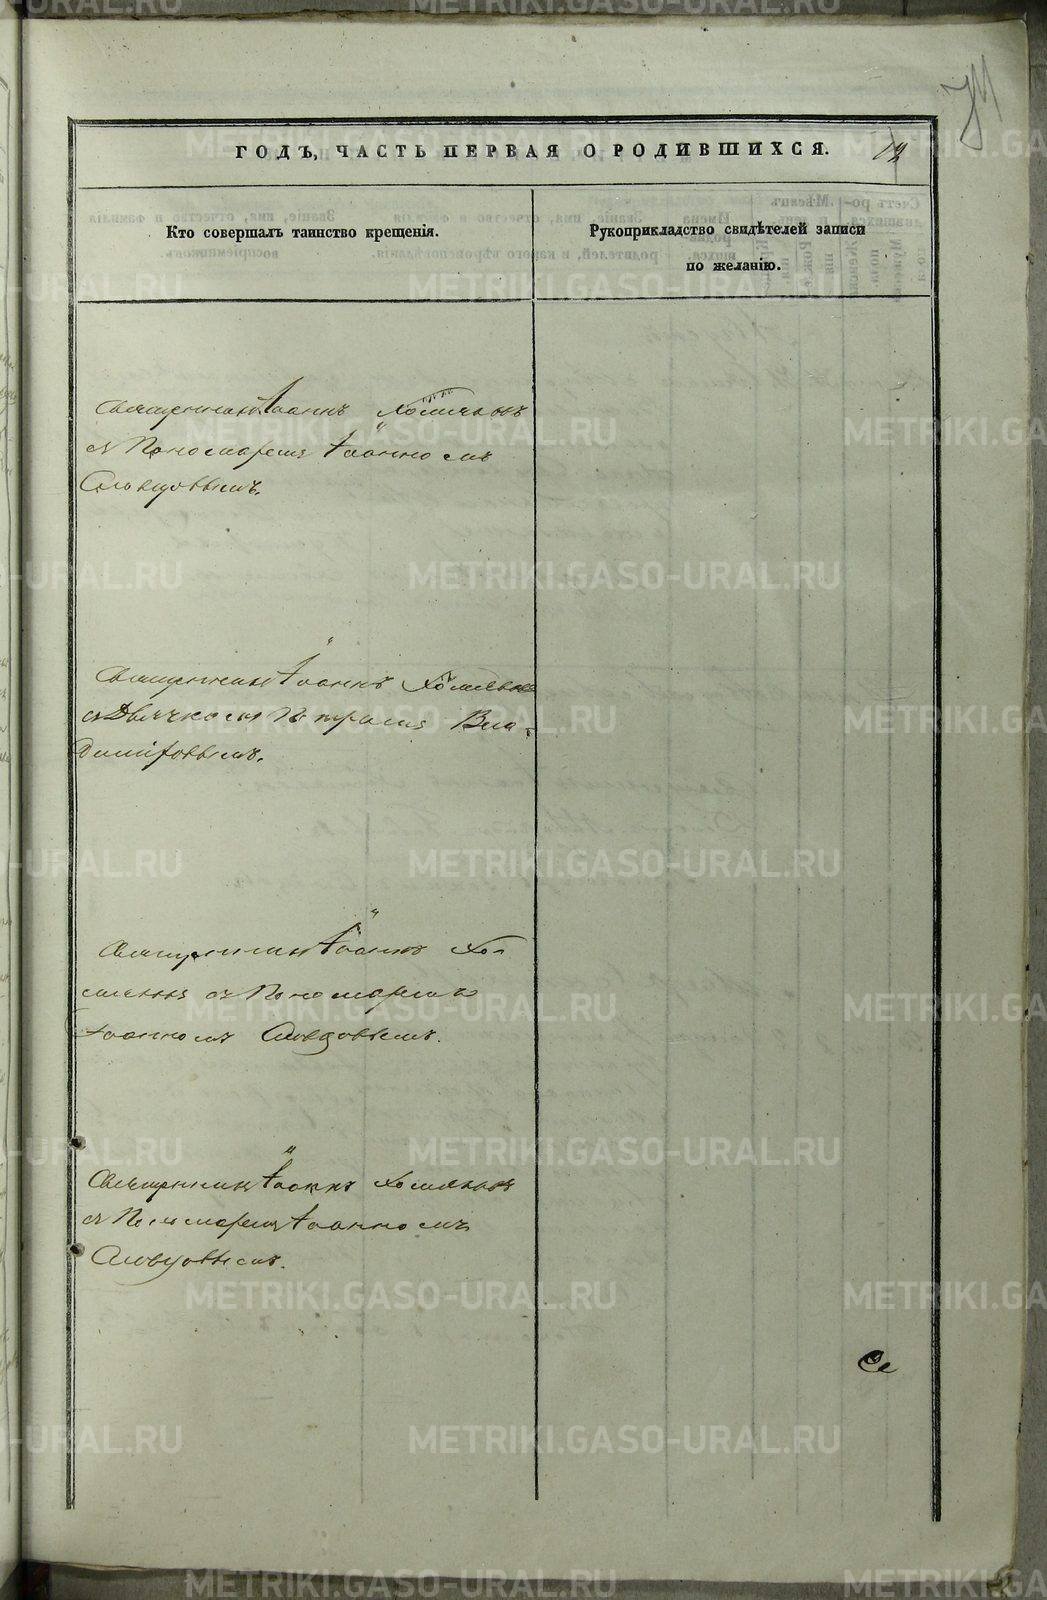 ГОДЪ, ЧАСТЬ ПЕРВАЯ О РОДИВШИХСЯ.
Кто совершалъ таинство крещенія.
Рукоприкладство свидѣтелей записи
по желанію.
Священникъ Іоаннъ Хомяковъ
съ Пономаремъ Іоанномъ
Словцовымъ.
Священникъ Іоаннъ Хомяковъ
съ Дьячкомъ Петромъ Вла-
диміровымъ.
Священникъ Іоаннъ Хо-
мяковъ съ Пономаремъ
Іоанномъ Словцовымъ.
Священникъ Іоаннъ Хомяковъ
съ Пономаремъ Іоанномъ
Словцовымъ.
METRIKI.GASO-URAL.RU